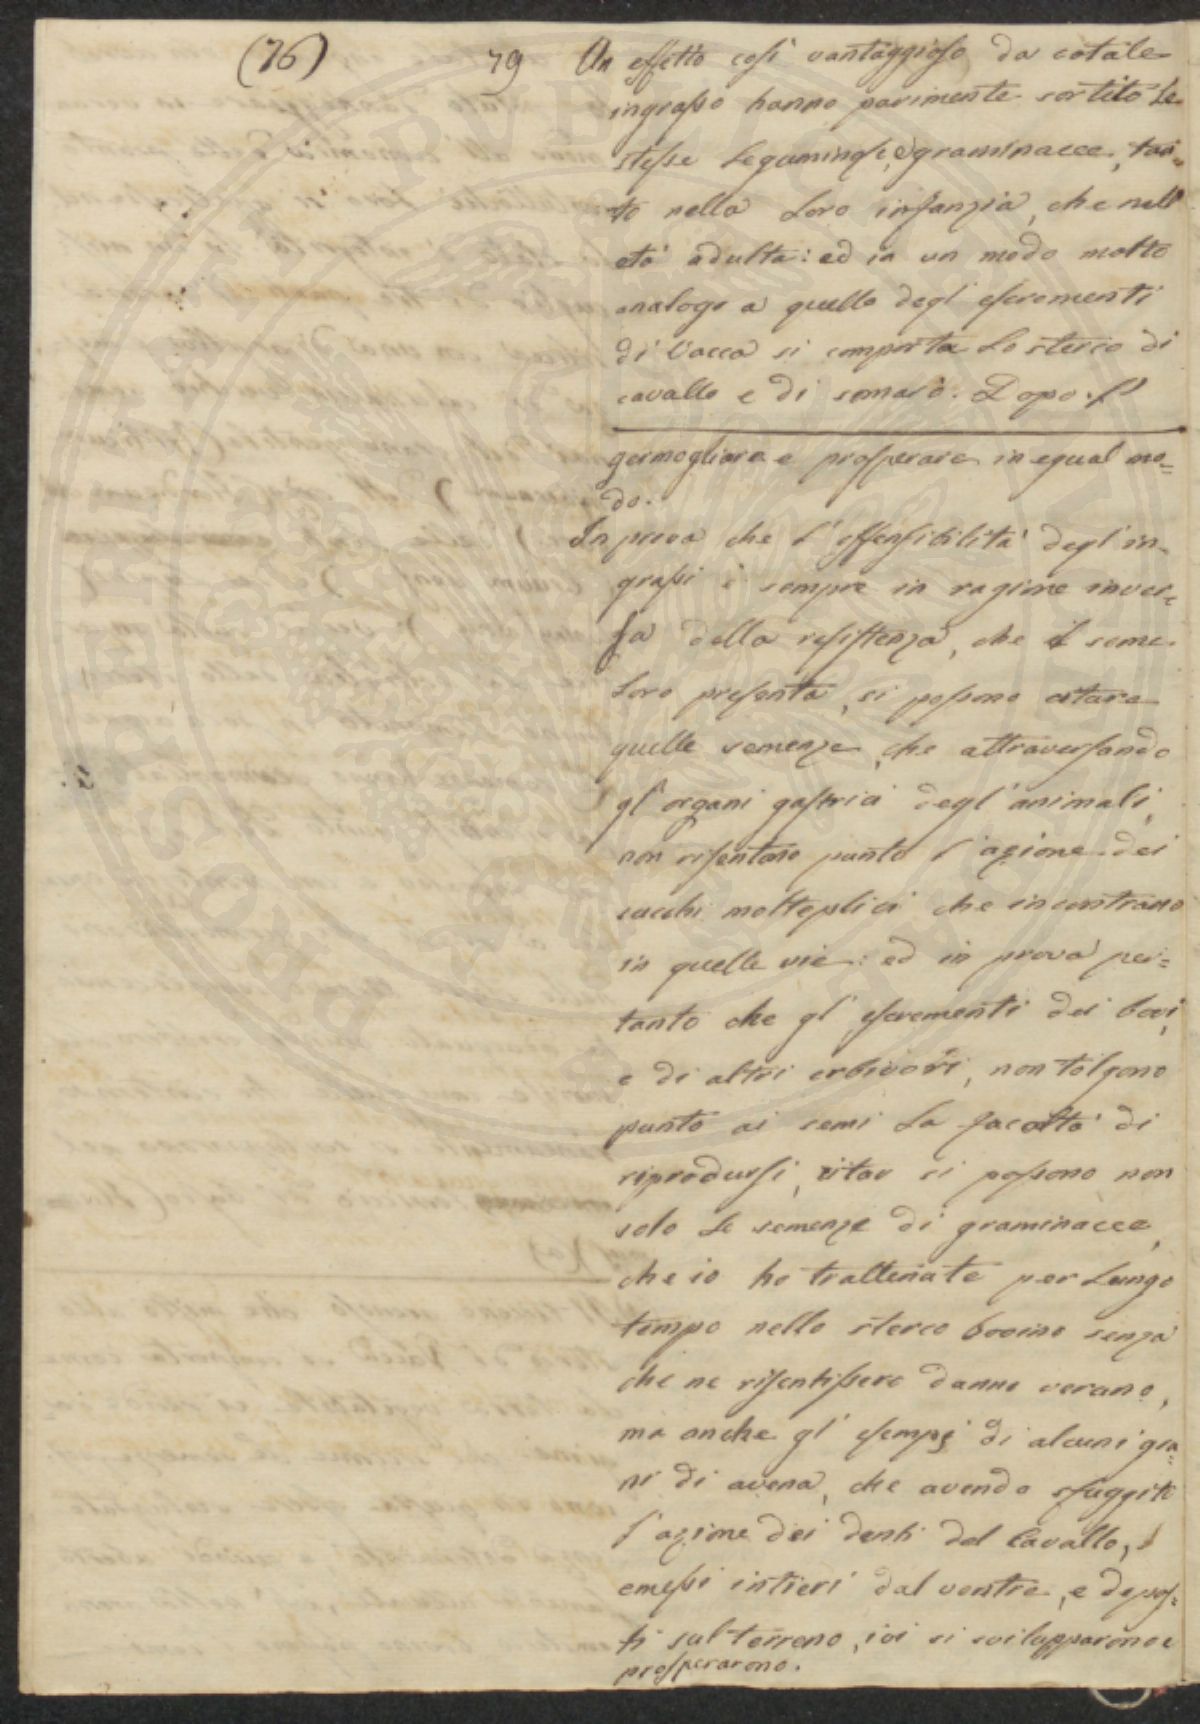 (76)
79 Un effetto così vantaggioso da cotale
ingrasso hanno parimente sortito Le
stesse Leguminose, e graminacee, tan=
to nella Loro infanzia, che nell'
età adulta: ed in un modo molto
analogo a quello degl' escrementi
di Vacca si comporta Lo sterco di
cavallo e di somaro. Dopo.
germogliare e prosperare in egual mo=
do.
In prova che l'offensibilità degl' in=
grassi è sempre in ragione inver=
sa della resistenza, che il seme
Loro presenta, si possono citare
quelle semenze, che attraversando
gl' organi gastrici degl' animali,
non risentono punto l'azione dei
succhi molteplici che incontrano
in quelle vie: ed in prova per=
tanto che gl' escrementi dei bovi,
e di altri erbivori, non tolgono
punto ai semi La facoltà di
riprodursi, citar si possono non
solo Le semenze di graminacee,
che io ho trattenute per Lungo
tempo nello sterco bovino senza
che ne risentissero danno verano,
ma anche gl' esempj di alcuni gra=
ni di avena, che avendo sfuggito
l'azione dei denti del Cavallo,
emessi intieri dal ventre, e depos=
ti sul terreno, ivi si svilupparono e
prosperarono.